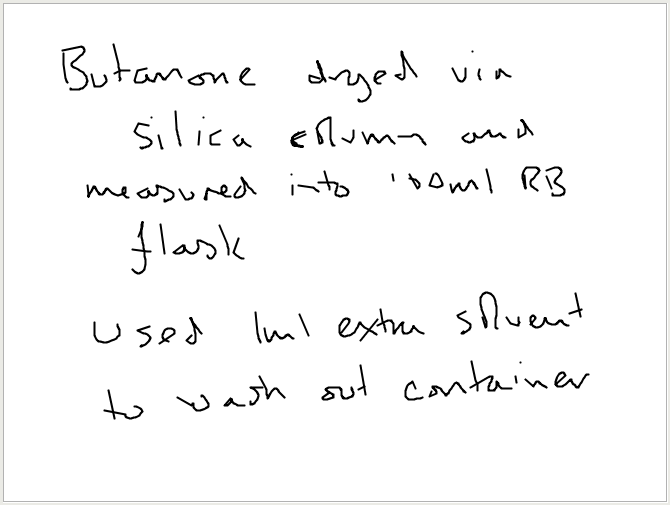 Butanone dryed via
silica column and
measured into 100ml RB
flask
Used 1ml extra solvent
to wash out container